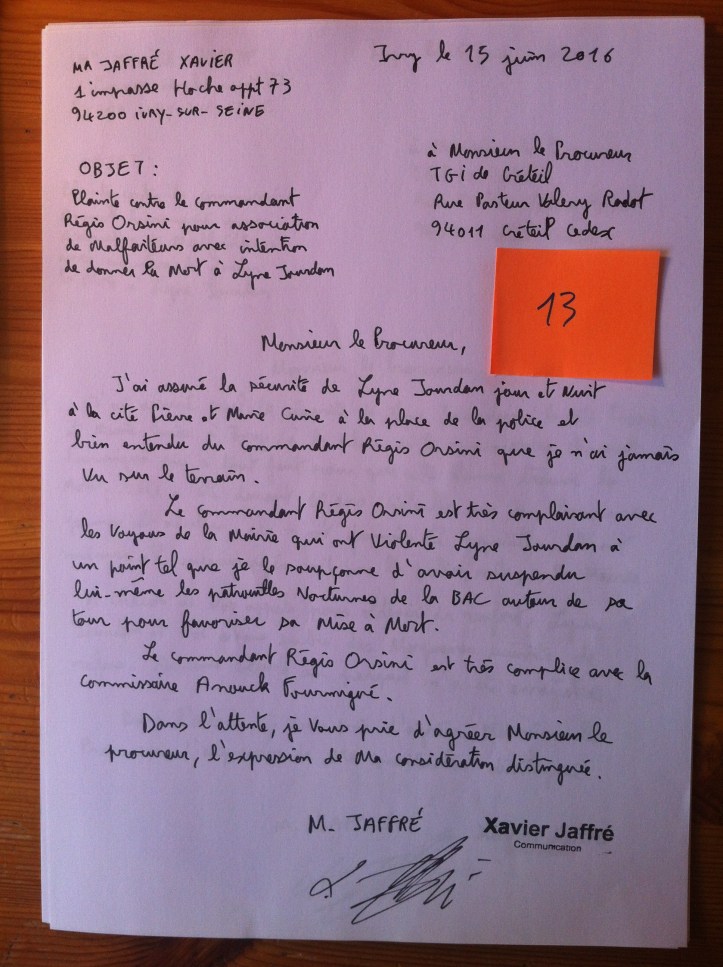 MR JAFFRÉ XAVIER
1 impasse Hoche appt 73
94200 IVRY-SUR-SEINE
Ivry le 15 juin 2016
OBJET :
Plainte contre le commandant
Régis Orsini pour association
de Malfaiteurs avec intention
de donner la Mort à Lyne Jourdan
à Monsieur le Procureur
TGI de Créteil
Rue Pasteur Valery Radot
94011 Créteil Cedex
13
Monsieur le Procureur,
J'ai assuré la sécurité de Lyne Jourdan jour et Nuit
à la cité Pierre et Marie Curie à la place de la police et
bien entendu du commandant Régis Orsini que je n'ai jamais
Vu sur le terrain.
Le commandant Régis Orsini est très complaisant avec
les Voyous de la Mairie qui ont Violenté Lyne Jourdan à
un point tel que je le soupçonne d'avoir suspendu
lui-même les patrouilles Nocturnes de la BAC autour de sa
tour pour favoriser sa Mise à Mort.
Le commandant Régis Orsini est très complice avec la
commissaire Anouck Fourmigué.
Dans l'attente, je Vous prie d'agréer Monsieur le
procureur, l'expression de Ma considération distinguée.
M. JAFFRÉ
Xavier Jaffré
Communication